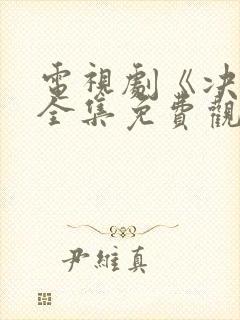 電視劇《决
全集免費觀
尹維真